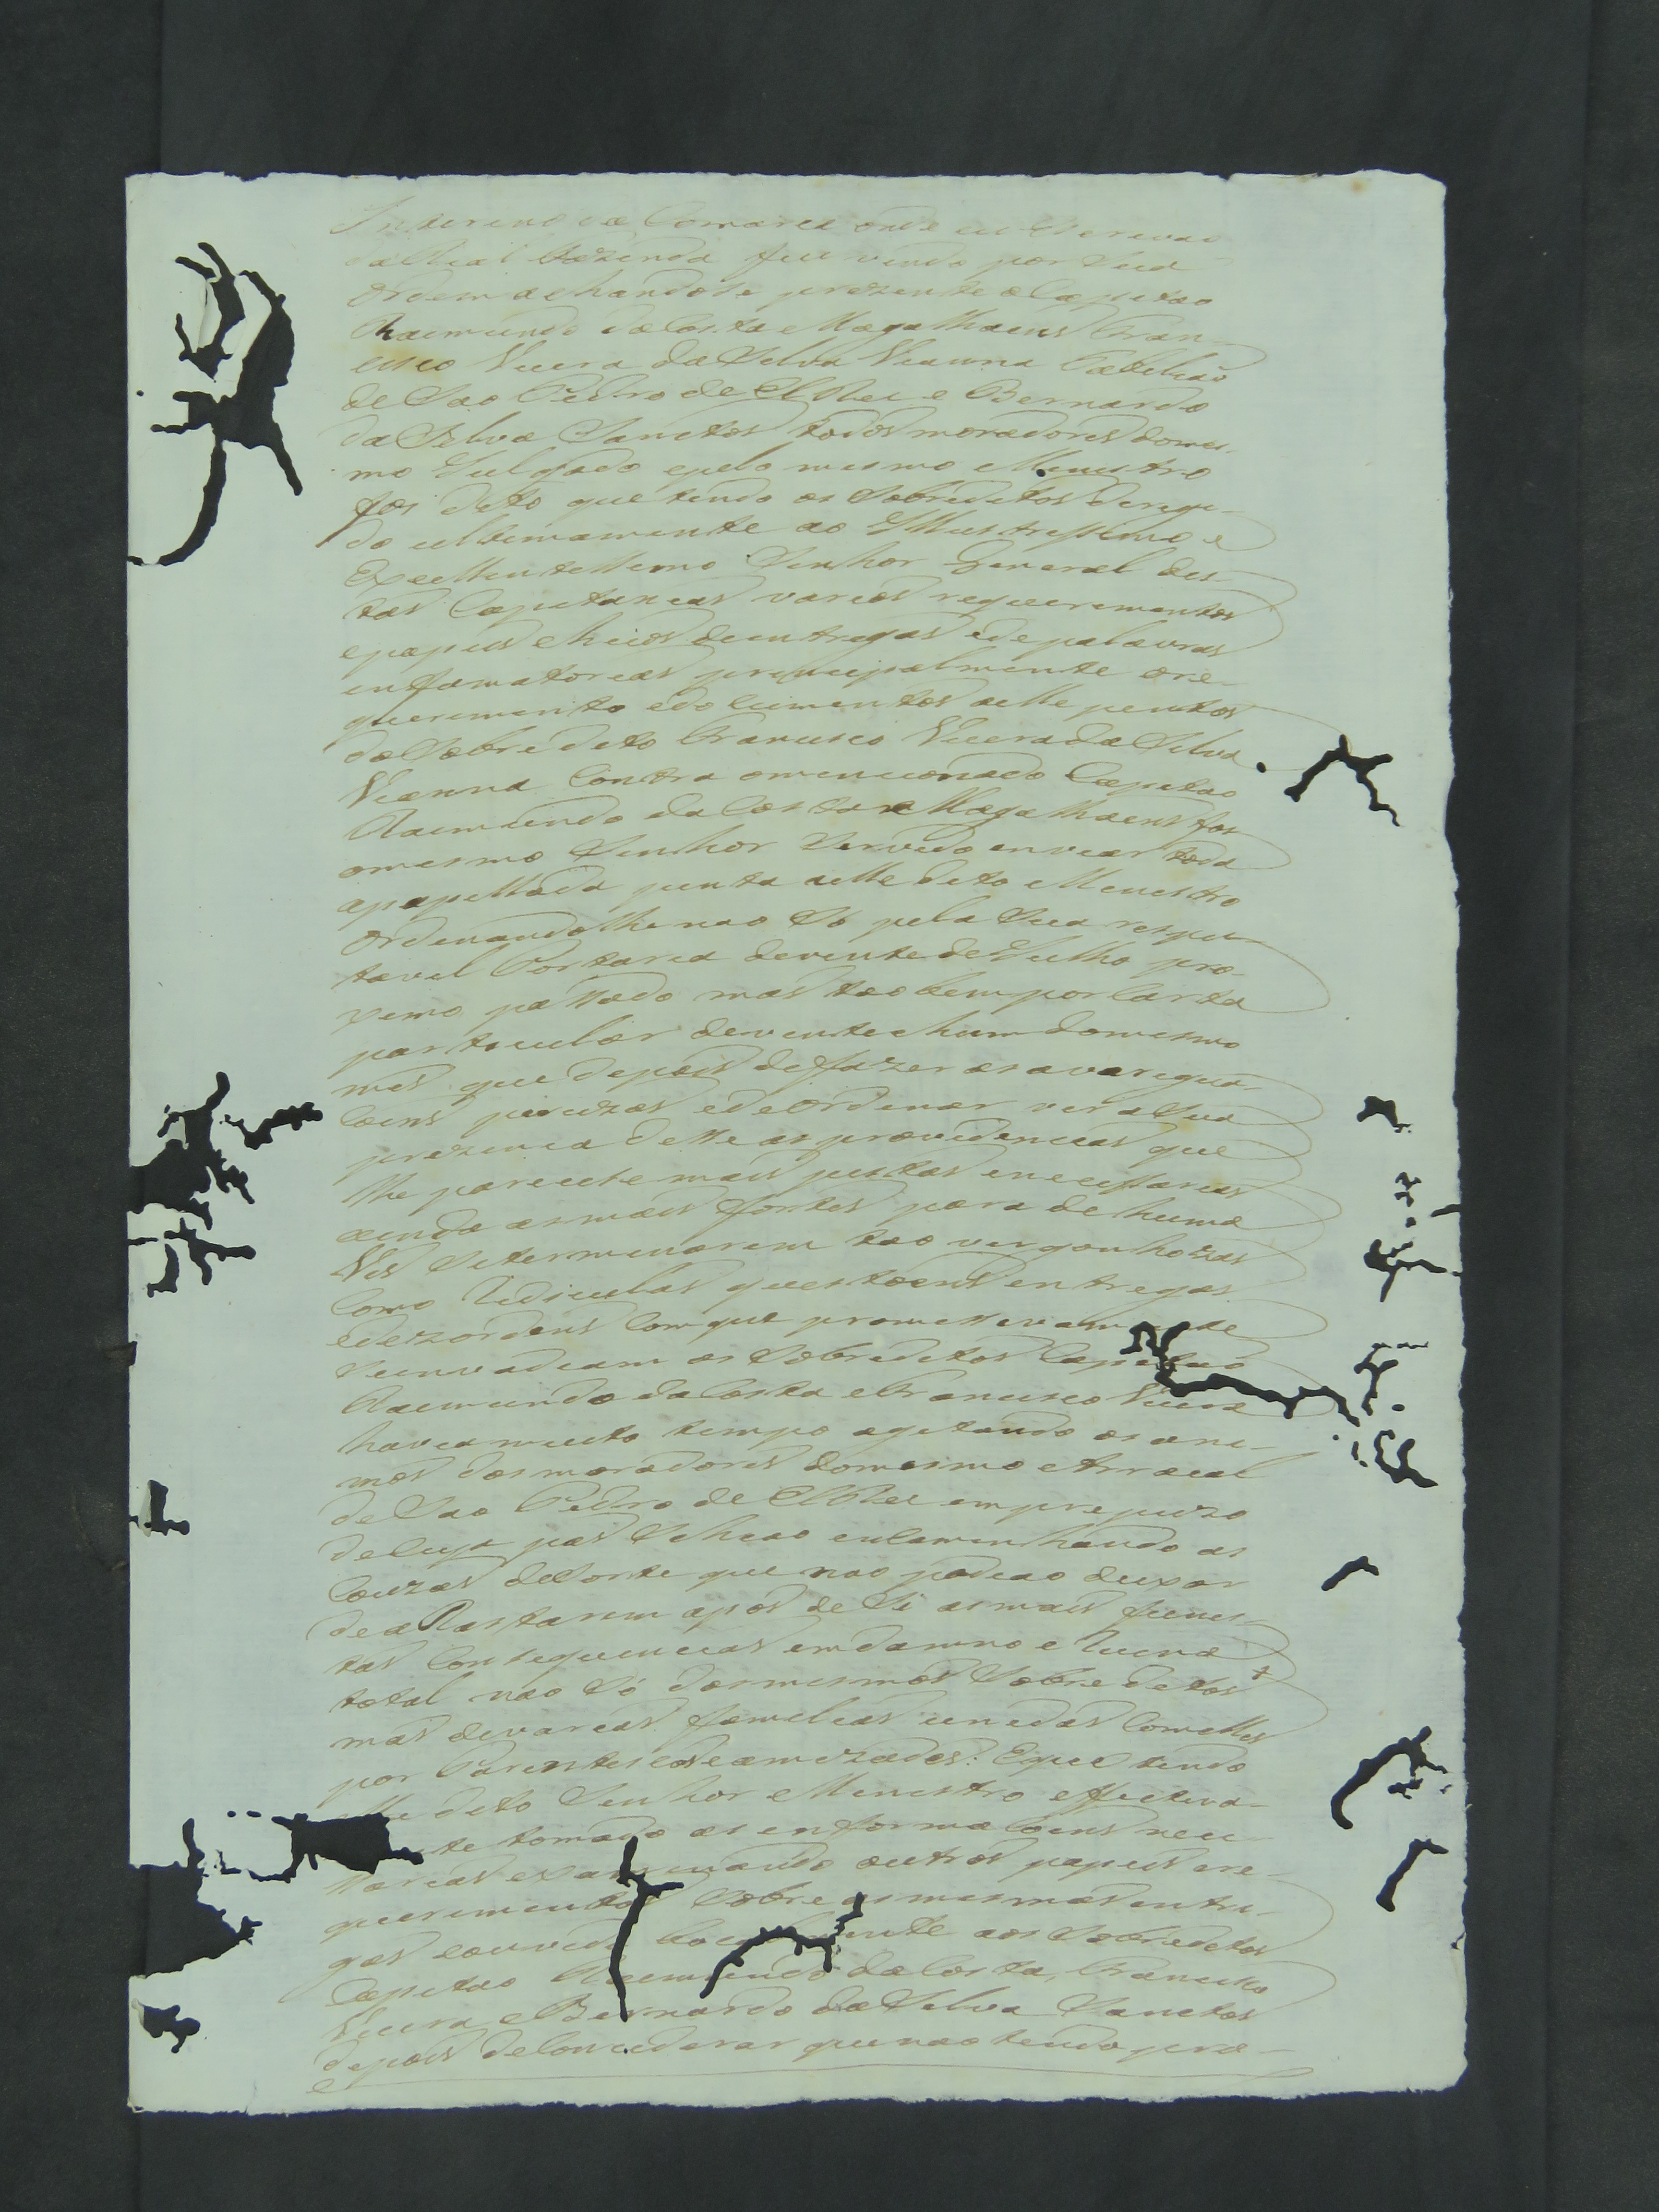 Interino da Comarca onde eu Escrivaõ
da Real Fazenda fui vindo por Sua
Ordem achandose prezente o Capitaõ
Raimundo da Costa e Magalhaens Fran-
cisco Vieira da Silva Vianna Capitaõ
de Sao Pedro de El Rei e Bernardo
da Silva Sanctos todos moradores domes-
mo Julgado epelo mesmo Menistro
foi dito que tendo os Sobreditos derigi-
do ultimamente ao Illustrissimo e
Excellentissimo Senhor General des-
tas Capitanias varios requerimentos
epapeis cheios deentregas edepalavras
enfamatorias principalmente ore-
querimento edocumentos aelle juntos
doSobredito Francisco Vieira da Silva
Vianna Contra omencionado Capitaõ
Raimundo da Costa e Magalhaens foi
omesmo Senhor Servido enviar toda
apapellada junta aelle dito Menistro
Ordenandolhe nao Só pela Sua respei-
tavel Portaria devinte de Julho pro-
ximo passado mas taobem por Carta
particular devinte ehum domesmo
mes que depois defazer as averigua-
coens percizas edeOrdenar vir aSua
prezenca desse as providencias que
lhe parecese mais justas enecessarias
ainda as mais fortes para de huma
Ves Determinarem tao vergonhozas
Como Rediculas questoens entregas
edezordens Com que
Seenvadiam os Sobreditos Capitaõ
Raimundo da Costa e Francisco Vieira
haviamuito tempo agitando os ani-
mos dos moradores domesmo Arraial
de Sao Pedro de El Rei em prejuizo
deCuja pas Sehiao encaminhando as
Couzas deSorte que nao podiao deixar
de aRastarem apos de Si as mais funes-
tas Consequencias emdamno e Ruina
total nao Só dosmesmos Sobreditos
mas devarias familias unidas Comelles
por Parentescos eamizades: Eque tendo
elle dito Senhor Menistro effectiva-
mente tomado as enformacoens nece-
ssarias examinando outros papeis ere-
querimentos Sobre asmesmas entri-
gas eouvido bocalmente aos Sobreditos
Capitao Raimundo da Costa, Francisco
Vieira, e Bernardo da Silva Sanctos
depois deConciderar quenao tendo pro-